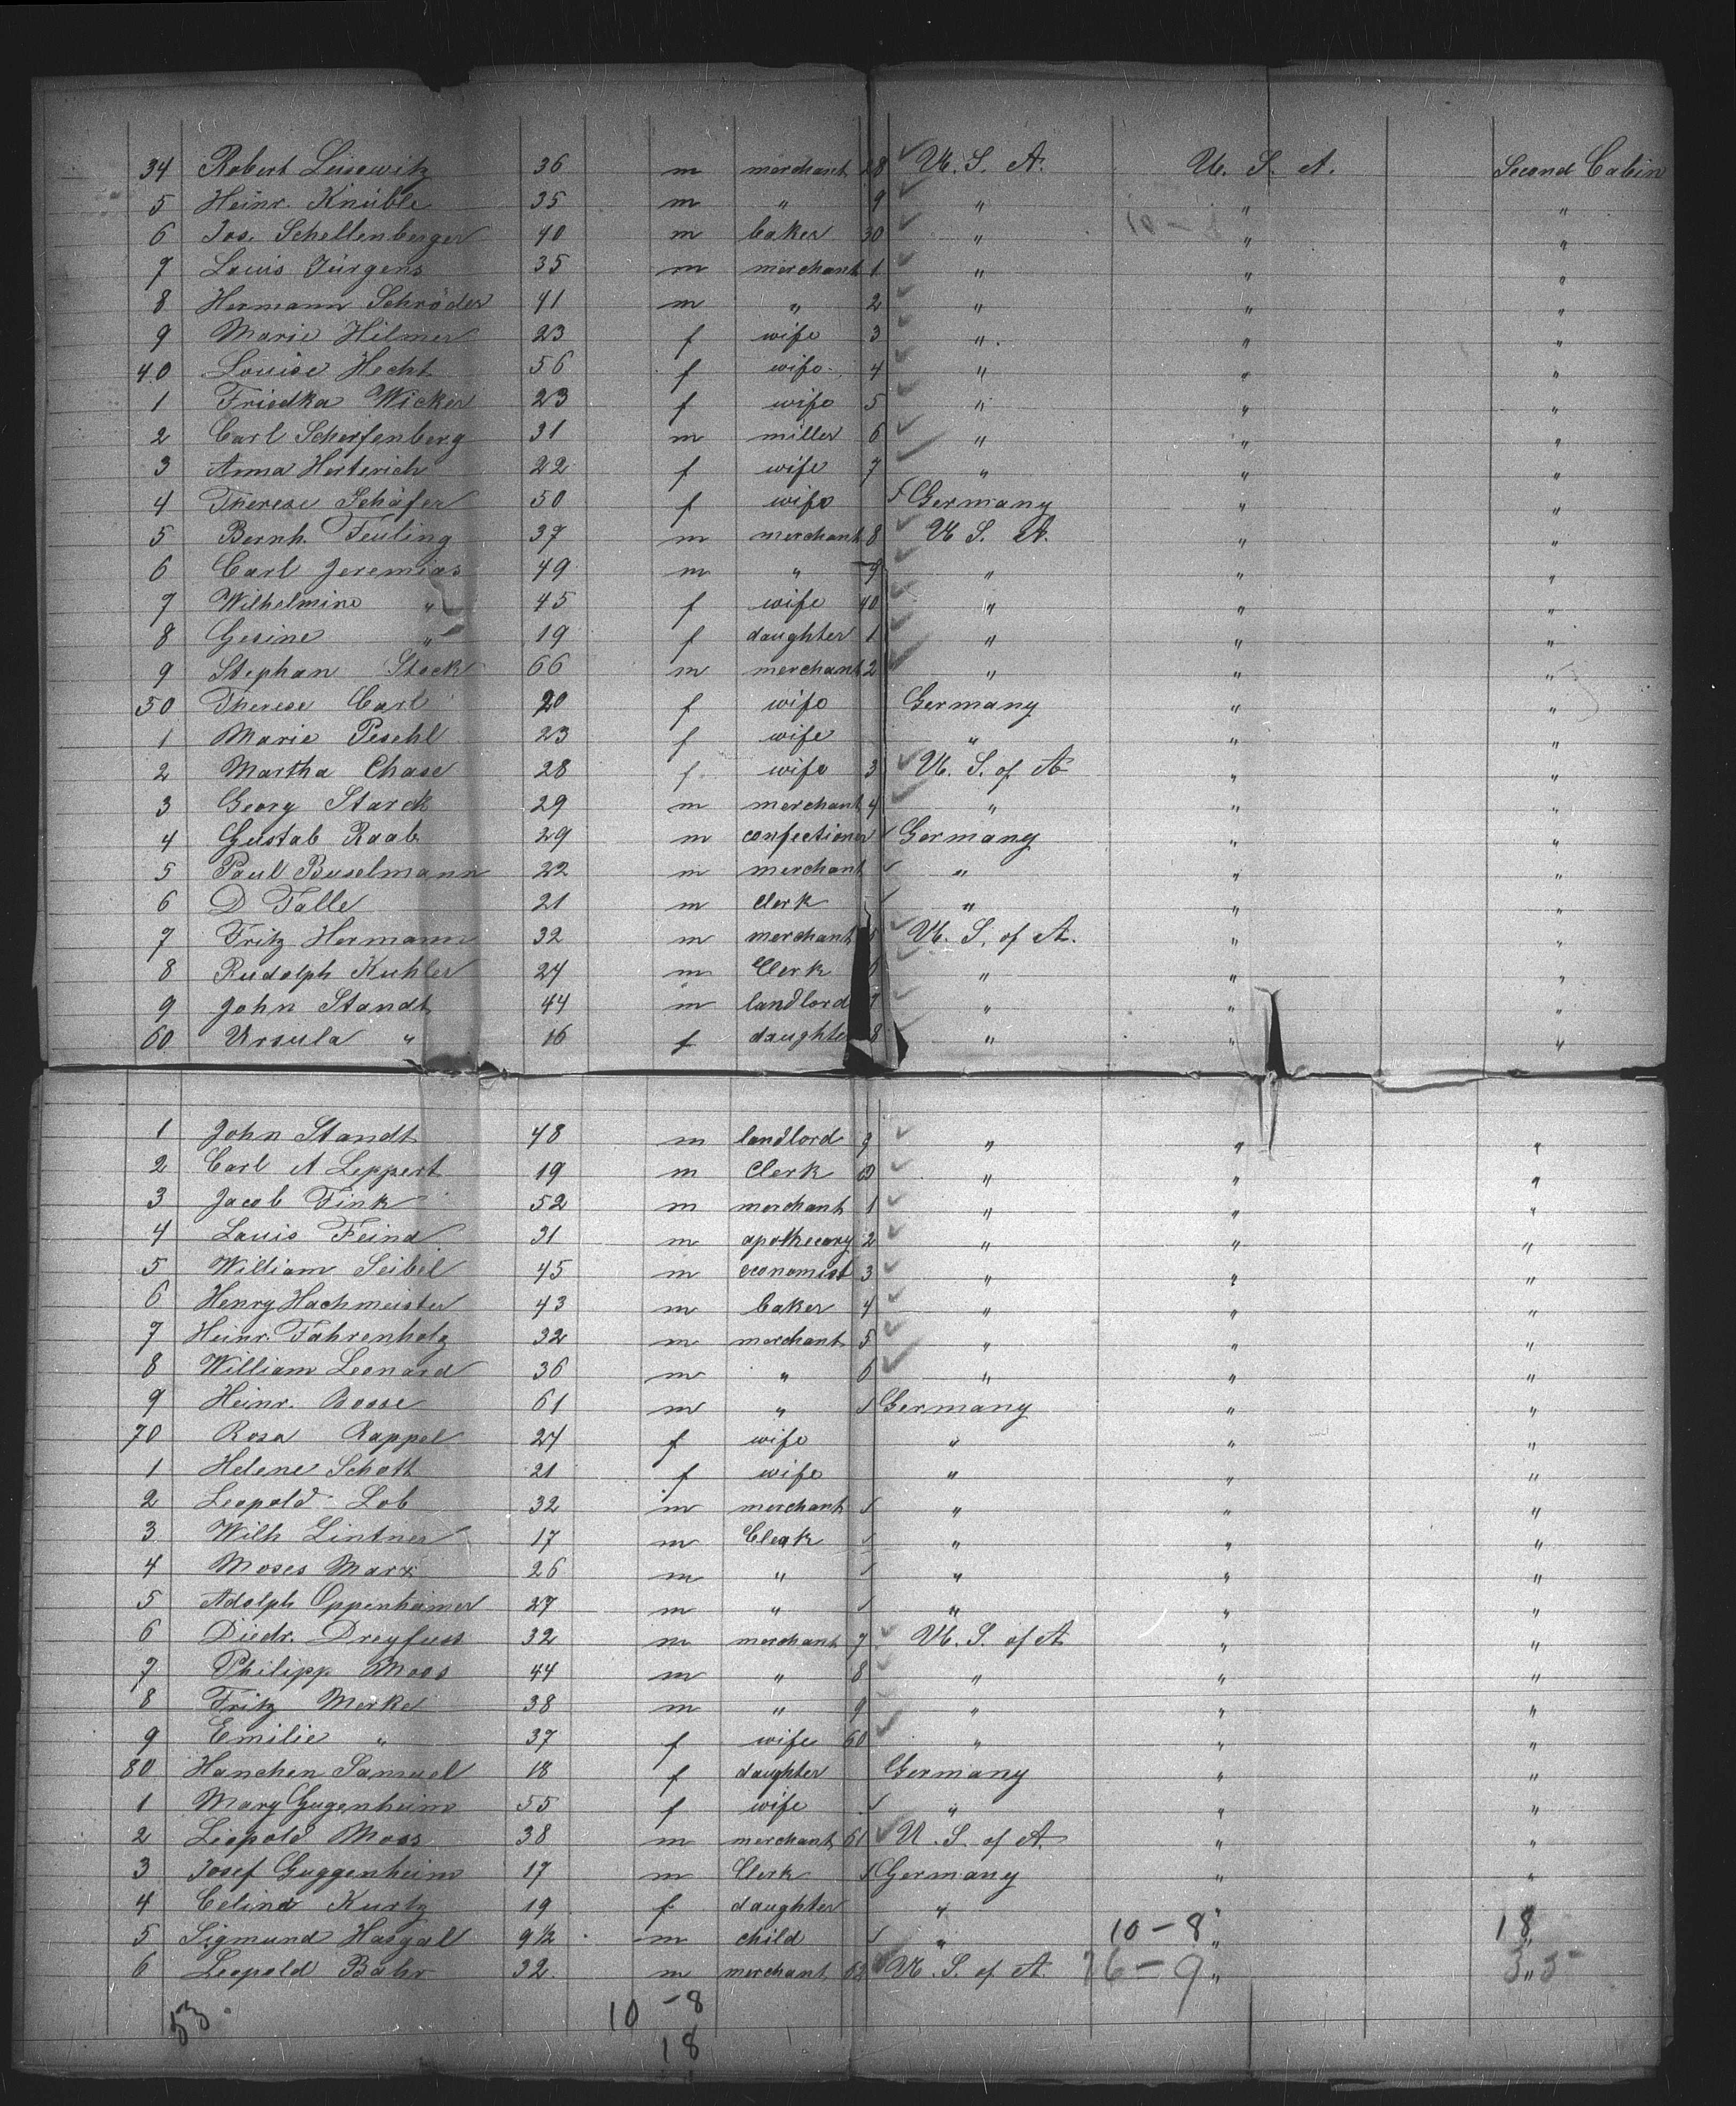 34 Robert Leisewitz 36 m merchant 28 U. S. A. U. S. A. Second Cabin
5 Heinr. Knüble 35 m " 9 " " "
6 Jos. Schellenberger 40 m baker 30 " " "
7 Louis Jürgens 35 m merchant 1 " " "
8 Hermann Schröder 41 m " 2 " " "
9 Marie Hilmer 23 f wife 3 " " "
40 Louise Hecht 56 f wife 4 " " "
1 Friedka Wicker 23 f wife 5 " " "
2 Carl Scherfenberg 31 m miller 6 " " "
3 Anna Herterich 22 f wife 7 " " "
4 Therese Schäfer 50 f wife Germany " "
5 Bernh. Teuling 37 m merchant 8 U. S. A. " "
6 Carl Jeremias 49 m " 9 " " "
7 Wilhelmine " 45 f wife 40 " " "
8 Gesine " 19 f daughter 1 " " "
9 Stephan Stock 66 m merchant 2 " " "
50 Therese Carl 20 f wife Germany " "
1 Marie Peschl 23 f wife " " "
2 Martha Chase 28 f wife 3 U. S. of A " "
3 Georg Starck 29 m merchant 4 " " "
4 Gustab Raab 29 m confectioner Germany " "
5 Paul Buselmann 22 m merchant " " "
6 D Talle 21 m Clerk " " "
7 Fritz Hermann 32 m merchant 5 U. S. of A. " "
8 Rudolph Kuhler 24 m Clerk 6 " " "
9 John Standt 44 m landlord 7 " " "
60 Ursula " 16 f daughter 8 " " "
1 John Standt 48 m landlord 9 " " "
2 Carl A Leppert 19 m Clerk " " "
3 Jacob Fink 52 m merchant 1 " " "
4 Louis Feind 31 m apothecary 2 " " "
5 William Seibel 45 m economist 3 " " "
6 Henry Hachmeister 43 m baker 4 " " "
7 Heinr. Fahrenholz 32 m merchant 5 " " "
8 William Leonard 36 m " 6 " " "
9 Heinr. Bosse 61 m " Germany " "
70 Rosa Rappel 24 f wife " " "
1 Helene Schott 21 f wife " " "
2 Leopold Lob 32 m merchant " " "
3 Wilh Lintner 17 m Clerk " " "
4 Moses Marx 26 m " " " "
5 Adolph Oppenheimer 27 m " " " "
6 Diedr. Dreyfuss 32 m merchant 7 U. S. of A " "
7 Philipp Moos 44 m " 8 " " "
8 Fritz Merkel 38 m " 9 " " "
9 Emilie " 37 f wife 60 " " "
80 Hanchen Samuel 18 f daughter Germany " "
1 Mary Gugenheim 55 f wife " " "
2 Leopold Moss 38 m merchant 61 U. S. of A. " "
3 Josef Guggenheim 17 m Clerk Germany " "
4 Celine Kurtz 19 f daughter " " "
5 Sigmund Hasgal 9 1/2 m child " 10 - 8 " 18 "
6 Leopold Bähr 32. m merchant 62 U. S. of A. 76 - 9 " 35 "
53
10 - 8
18